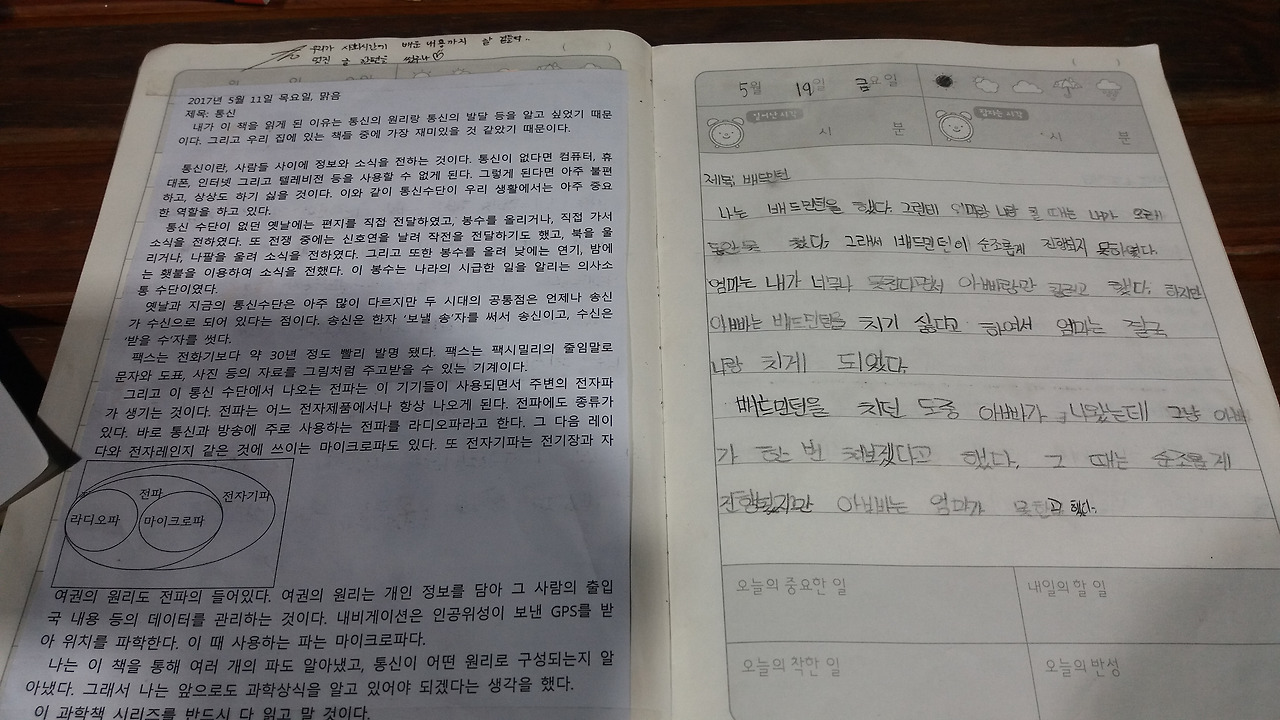 우리가 사회시간에 배운 내용까지 잘
멋진 글
2017년 5월 11일 목요일, 맑음
제목: 통신
내가 이 책을 읽게 된 이유는 통신의 원리랑 통신의 발달 등을 알고 싶었기 때문
이다. 그리고 우리 집에 있는 책들 중에 가장 재미있을 것 같았기 때문이다.
통신이란, 사람들 사이에 정보와 소식을 전하는 것이다. 통신이 없다면 컴퓨터, 휴
대폰, 인터넷 그리고 텔레비전 등을 사용할 수 없게 된다. 그렇게 된다면 아주 불편
하고, 상상도 하기 싫을 것이다. 이와 같이 통신수단이 우리 생활에서는 아주 중요
한 역할을 하고 있다.
통신 수단이 없던 옛날에는 편지를 직접 전달하였고, 봉수를 올리거나, 직접 가서
소식을 전하였다. 또 전쟁 중에는 신호연을 날려 작전을 전달하기도 했고, 북을 울
리거나, 나팔을 울려 소식을 전하였다. 그리고 또한 봉수를 올려 낮에는 연기, 밤에
는 횃불을 이용하여 소식을 전했다. 이 봉수는 나라의 시급한 일을 알리는 의사소
통 수단이였다.
옛날과 지금의 통신수단은 아주 많이 다르지만 두 시대의 공통점은 언제나 송신
가 수신으로 되어 있다는 점이다. 송신은 한자 '보낼 송'자를 써서 송신이고, 수신은
'받을 수'자를 썻다.
팩스는 전화기보다 약 30년 정도 빨리 발명 됐다. 팩스는 팩시밀리의 줄임말로
문자와 도표, 사진 등의 자료를 그림처럼 주고받을 수 있는 기계이다.
그리고 이 통신 수단에서 나오는 전파는 이 기기들이 사용되면서 주변의 전자파
가 생기는 것이다. 전파는 어느 전자제품에서나 항상 나오게 된다. 전파에도 종류가
있다. 바로 통신과 방송에 주로 사용하는 전파를 라디오파라고 한다. 그 다음 레이
다와 전자레인지 같은 것에 쓰이는 마이크로파도 있다. 또 전자기파는 전기장과 자
전파 전자기파
라디오파 마이크로파
여권의 원리도 전파의 들어있다. 여권의 원리는 개인 정보를 담아 그 사람의 출입
국 내용 등의 데이터를 관리하는 것이다. 내비게이션은 인공위성이 보낸 GPS를 받
아 위치를 파학한다. 이 때 사용하는 파는 마이크로파다.
나는 이 책을 통해 여러 개의 파도 알아냈고, 통신이 어떤 원리로 구성되는지 알
아냈다. 그래서 나는 앞으로도 과학상식을 알고 있어야 되겠다는 생각을 했다.
이 과학책 시리즈를 반드시 다 읽고 말 것이다.
5월 19일 금요일
일어난 시각 시 분 잠자는 시각 시 분
제목: 배드민턴
나는 배드민턴을 했다. 그런데 엄마랑 나랑 할 때는 내가 오래
동안 못 쳤다. 그래서 배드민턴이 순조롭게 진행되지 못하였다.
엄마는 내가 너무나 못친다면서 아빠랑만 했다. 하지만
아빠는 배드민턴을 치기 싫다고 하여서 엄마는 결국
나랑 치게 되었다.
배드민턴을 치던 도중 아빠가 나왔는데 그냥 아빠
가 한 번 쳐보겠다고 했다. 그 때는 순조롭게
진행됬지만 아빠는 엄마가 못한다고 했다.
오늘의 중요한 일 내일의 할 일
오늘의 착한 일 오늘의 반성